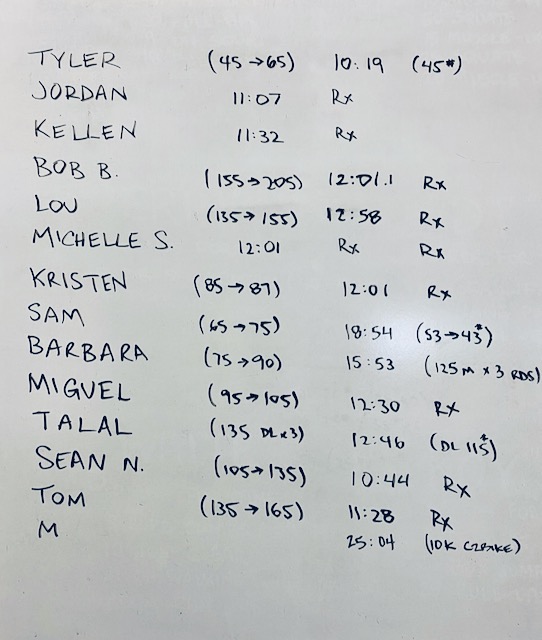 TYLER (45→65) 10:19 (45#)
JORDAN 11:07 Rx
KELLEN 11:32 Rx
BOB B. (155→205) 12:01.1 Rx
LOU (135→155) 12:58 Rx
MICHELLE S. 12:01 Rx Rx
KRISTEN (85→87) 12:01 Rx
SAM (65→75) 18:54 (53→43#)
BARBARA (75→90) 15:53 (125M x 3 RDS)
MIGUEL (95→105) 12:30 Rx
TALAL (135 DL x3) 12:46 (DL 115#)
SEAN N. (105→135) 10:44 Rx
TOM (135→165) 11:28 Rx
M 25:04 (10K